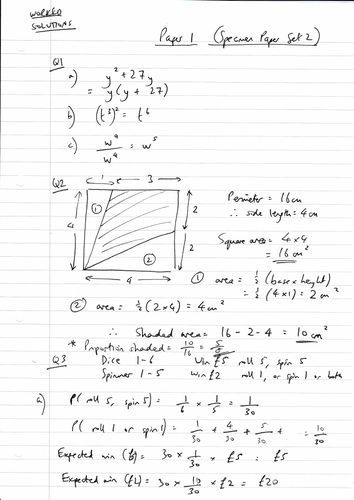 WORKED
SOLUTIONS
Paper 1 (Specimen Paper Set 2)
Q1
a) y² + 27y
= y(y + 27)
b) (t³)² = t⁶
c) w⁹/w⁴ = w⁵
Q2
1 3
4 ① 2
2
②
4
Perimeter = 16cm
∴ side length = 4cm
Square area = 4x4
= 16cm²
① area = ½(base x height)
= ½(4x1) = 2cm²
② area = ½(2x4) = 4cm²
∴ Shaded area = 16 - 2 - 4 = 10cm²
* Proportion shaded = 10/16 = 5/8
Q3 Dice 1-6 Win £5 roll 5, spin 5
Spinner 1-5 win £2 roll 1, or spin 1 or both
a) P(roll 5, spin 5) = 1/6 x 1/5 = 1/30
P(roll 1 or spin 1) = 1/30 + 4/30 + 5/30 + = 10/30
Expected win (£5) = 30 x 1/30 x £5 = £5
Expected win (£2) = 30 x 10/30 x £2 = £20